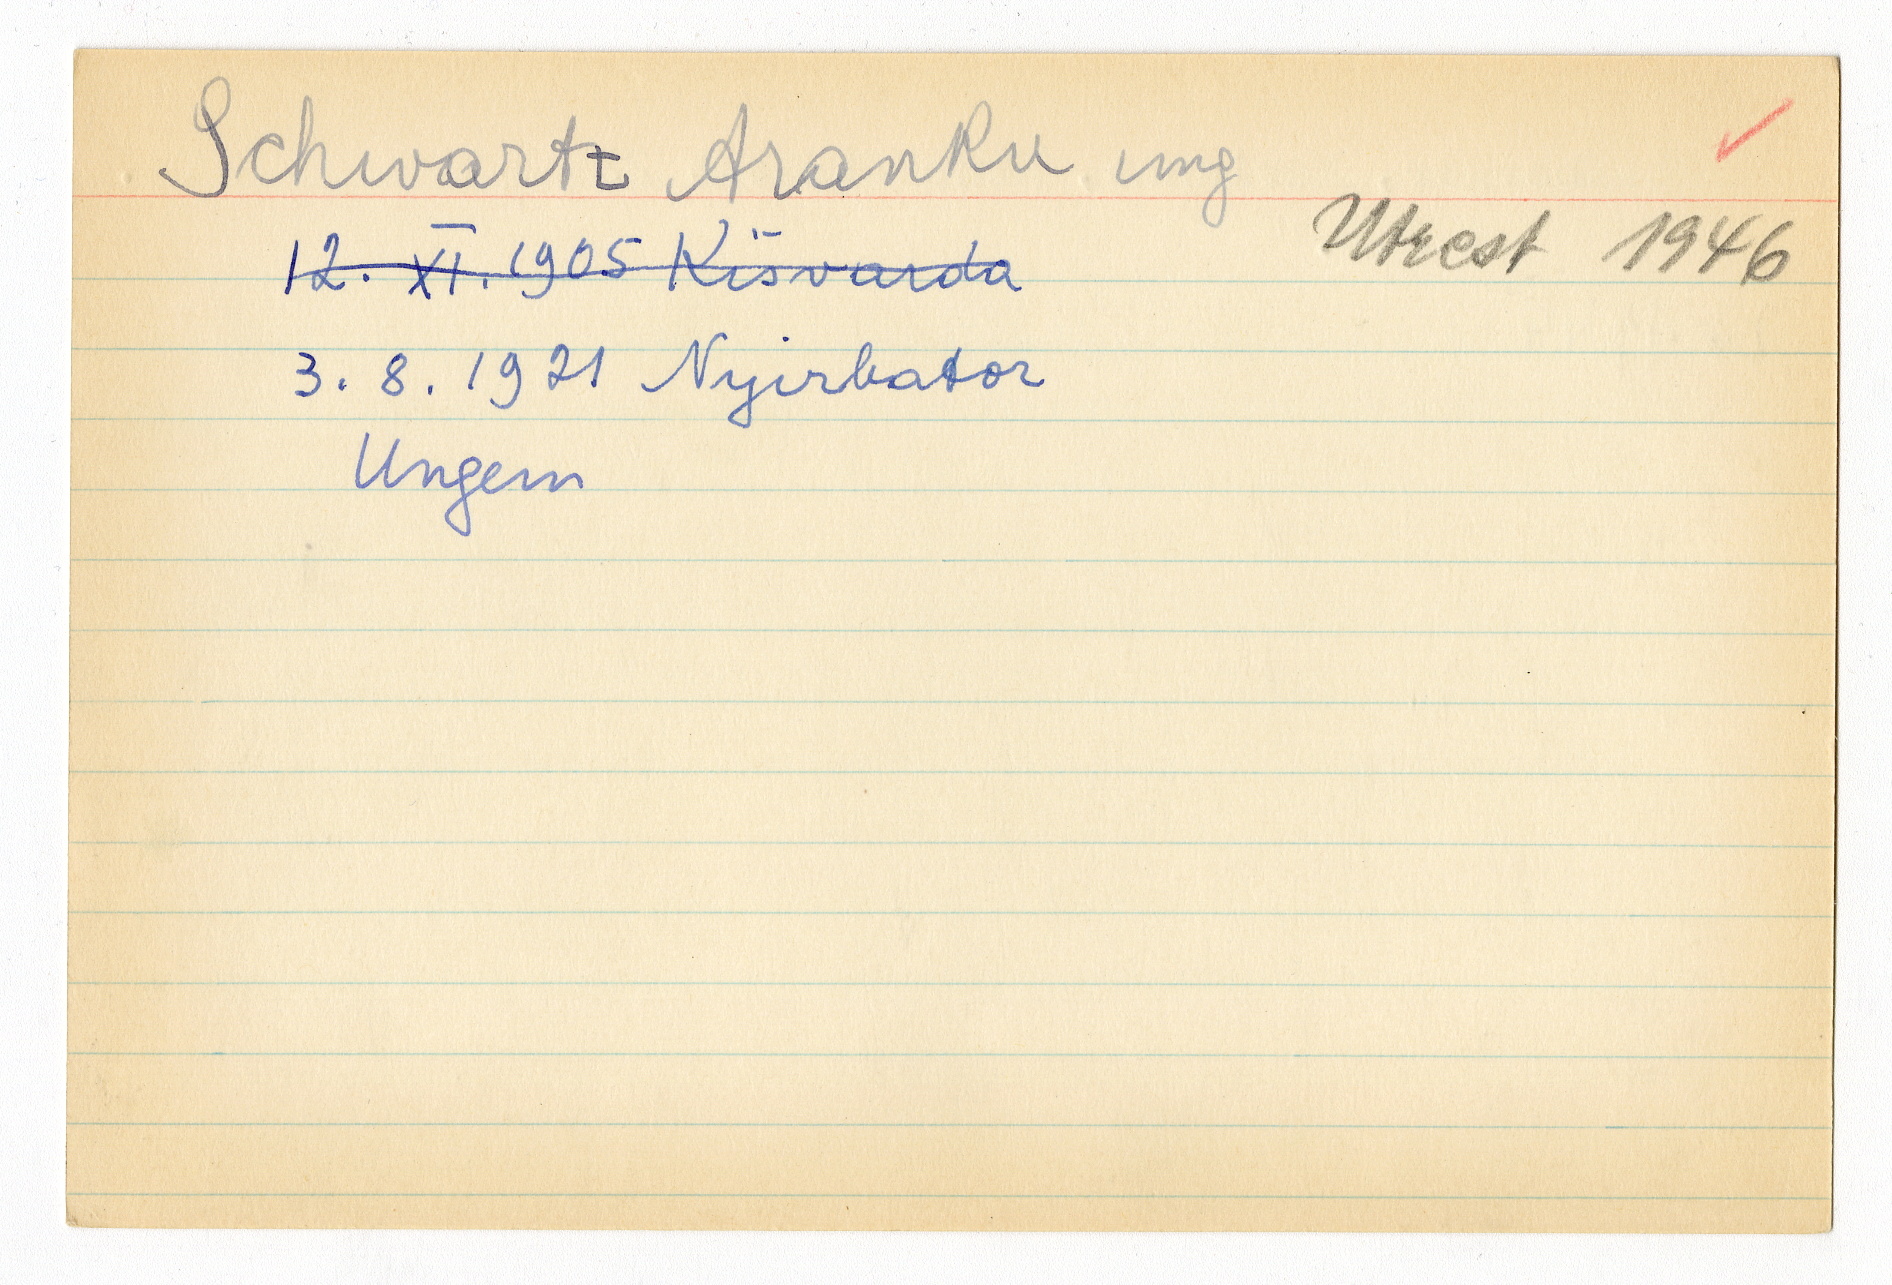 Schwartz Aranku ung
Utrest 1946
12. XI. 1905 Kisvarda
3. 8. 1921 Nyirbator
Ungern